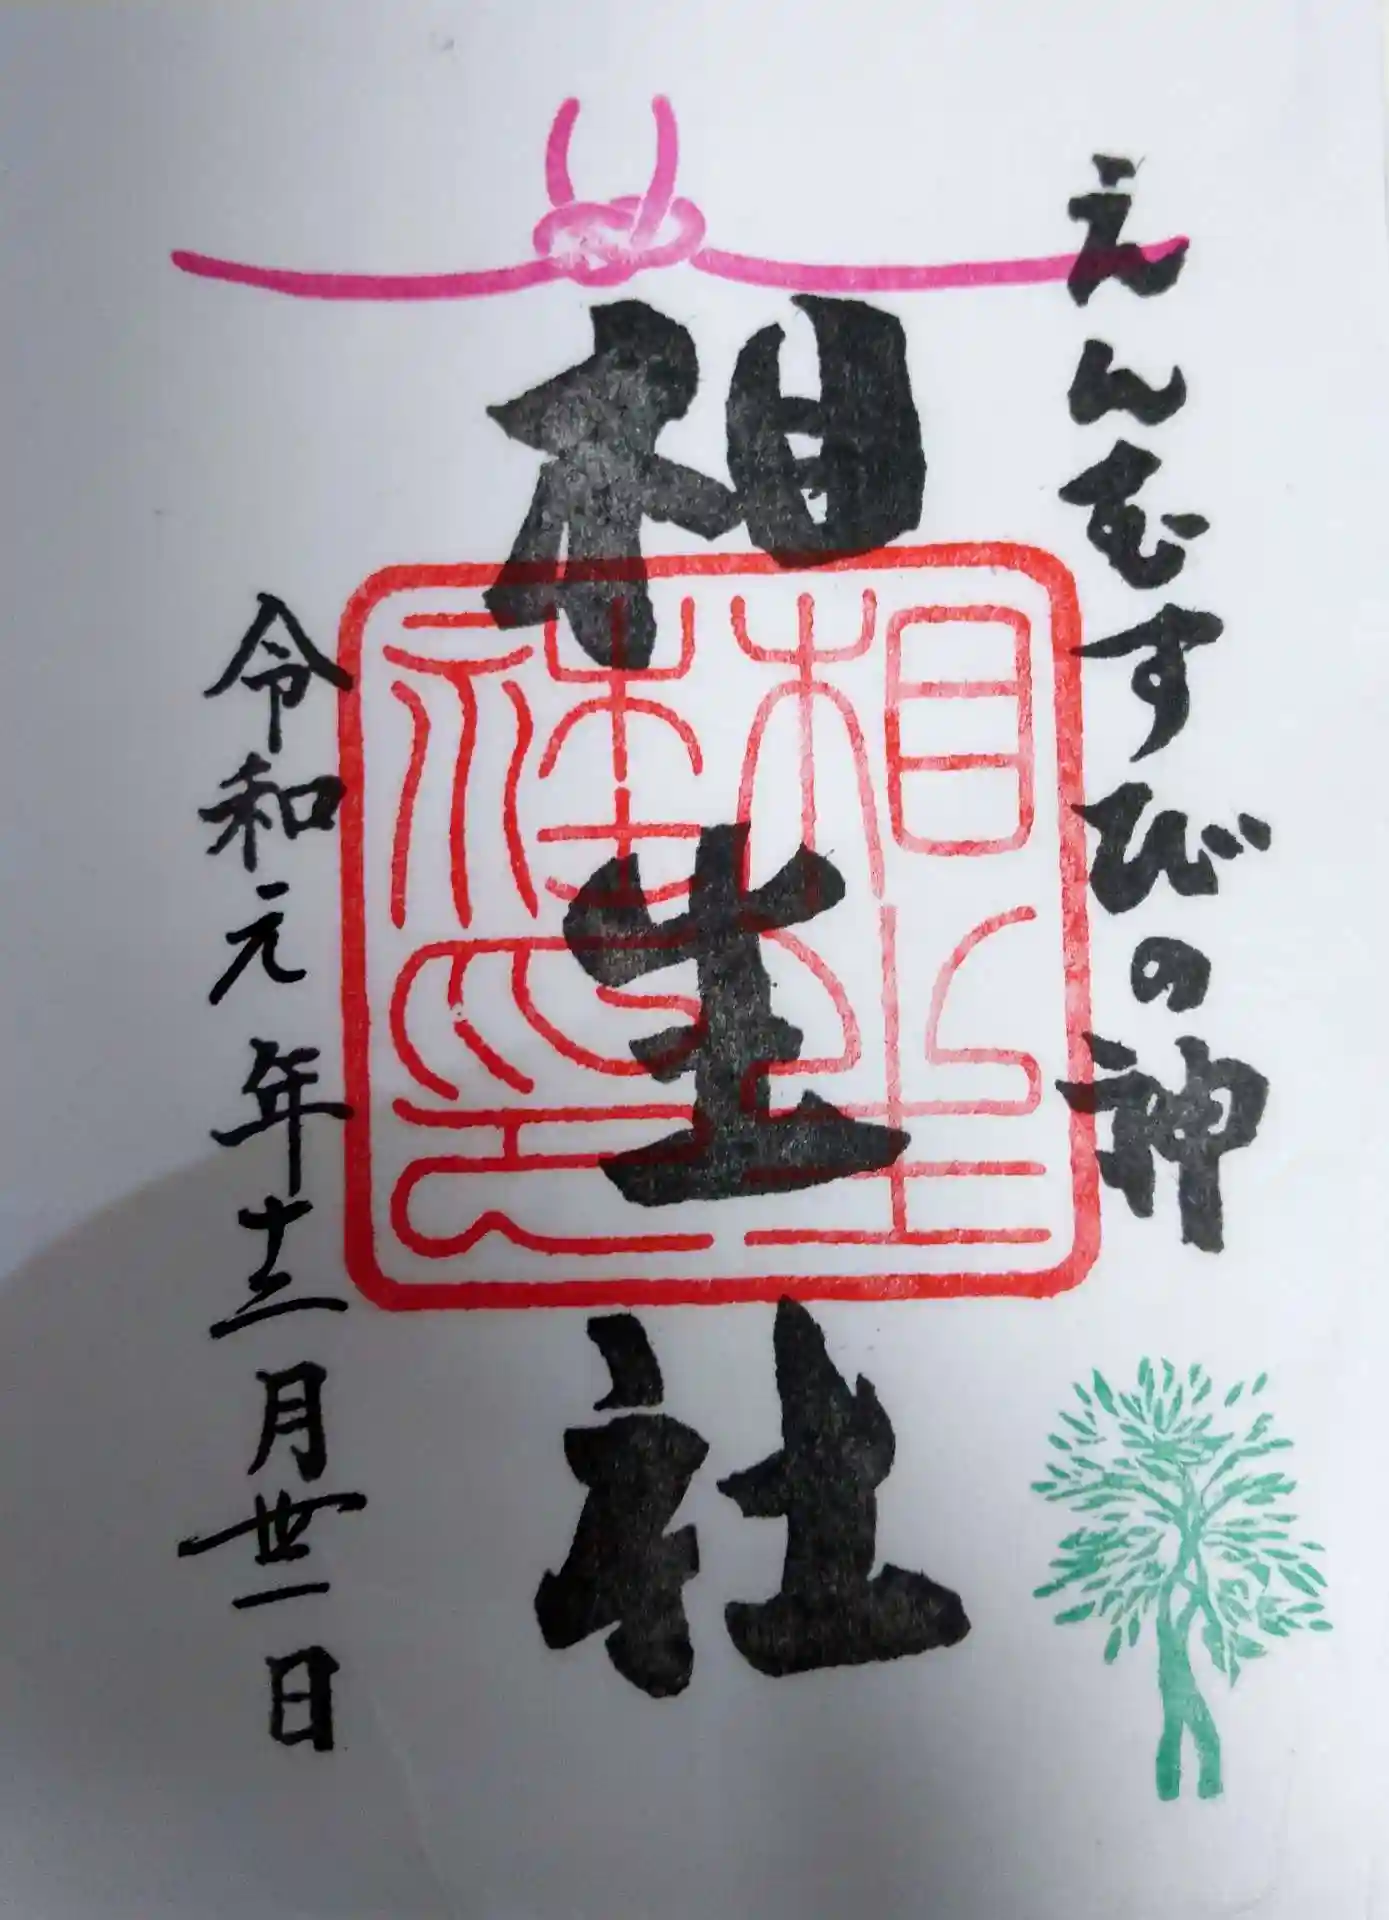 えんむすびの神
相生社
相生社印
令和元年十二月丗一日